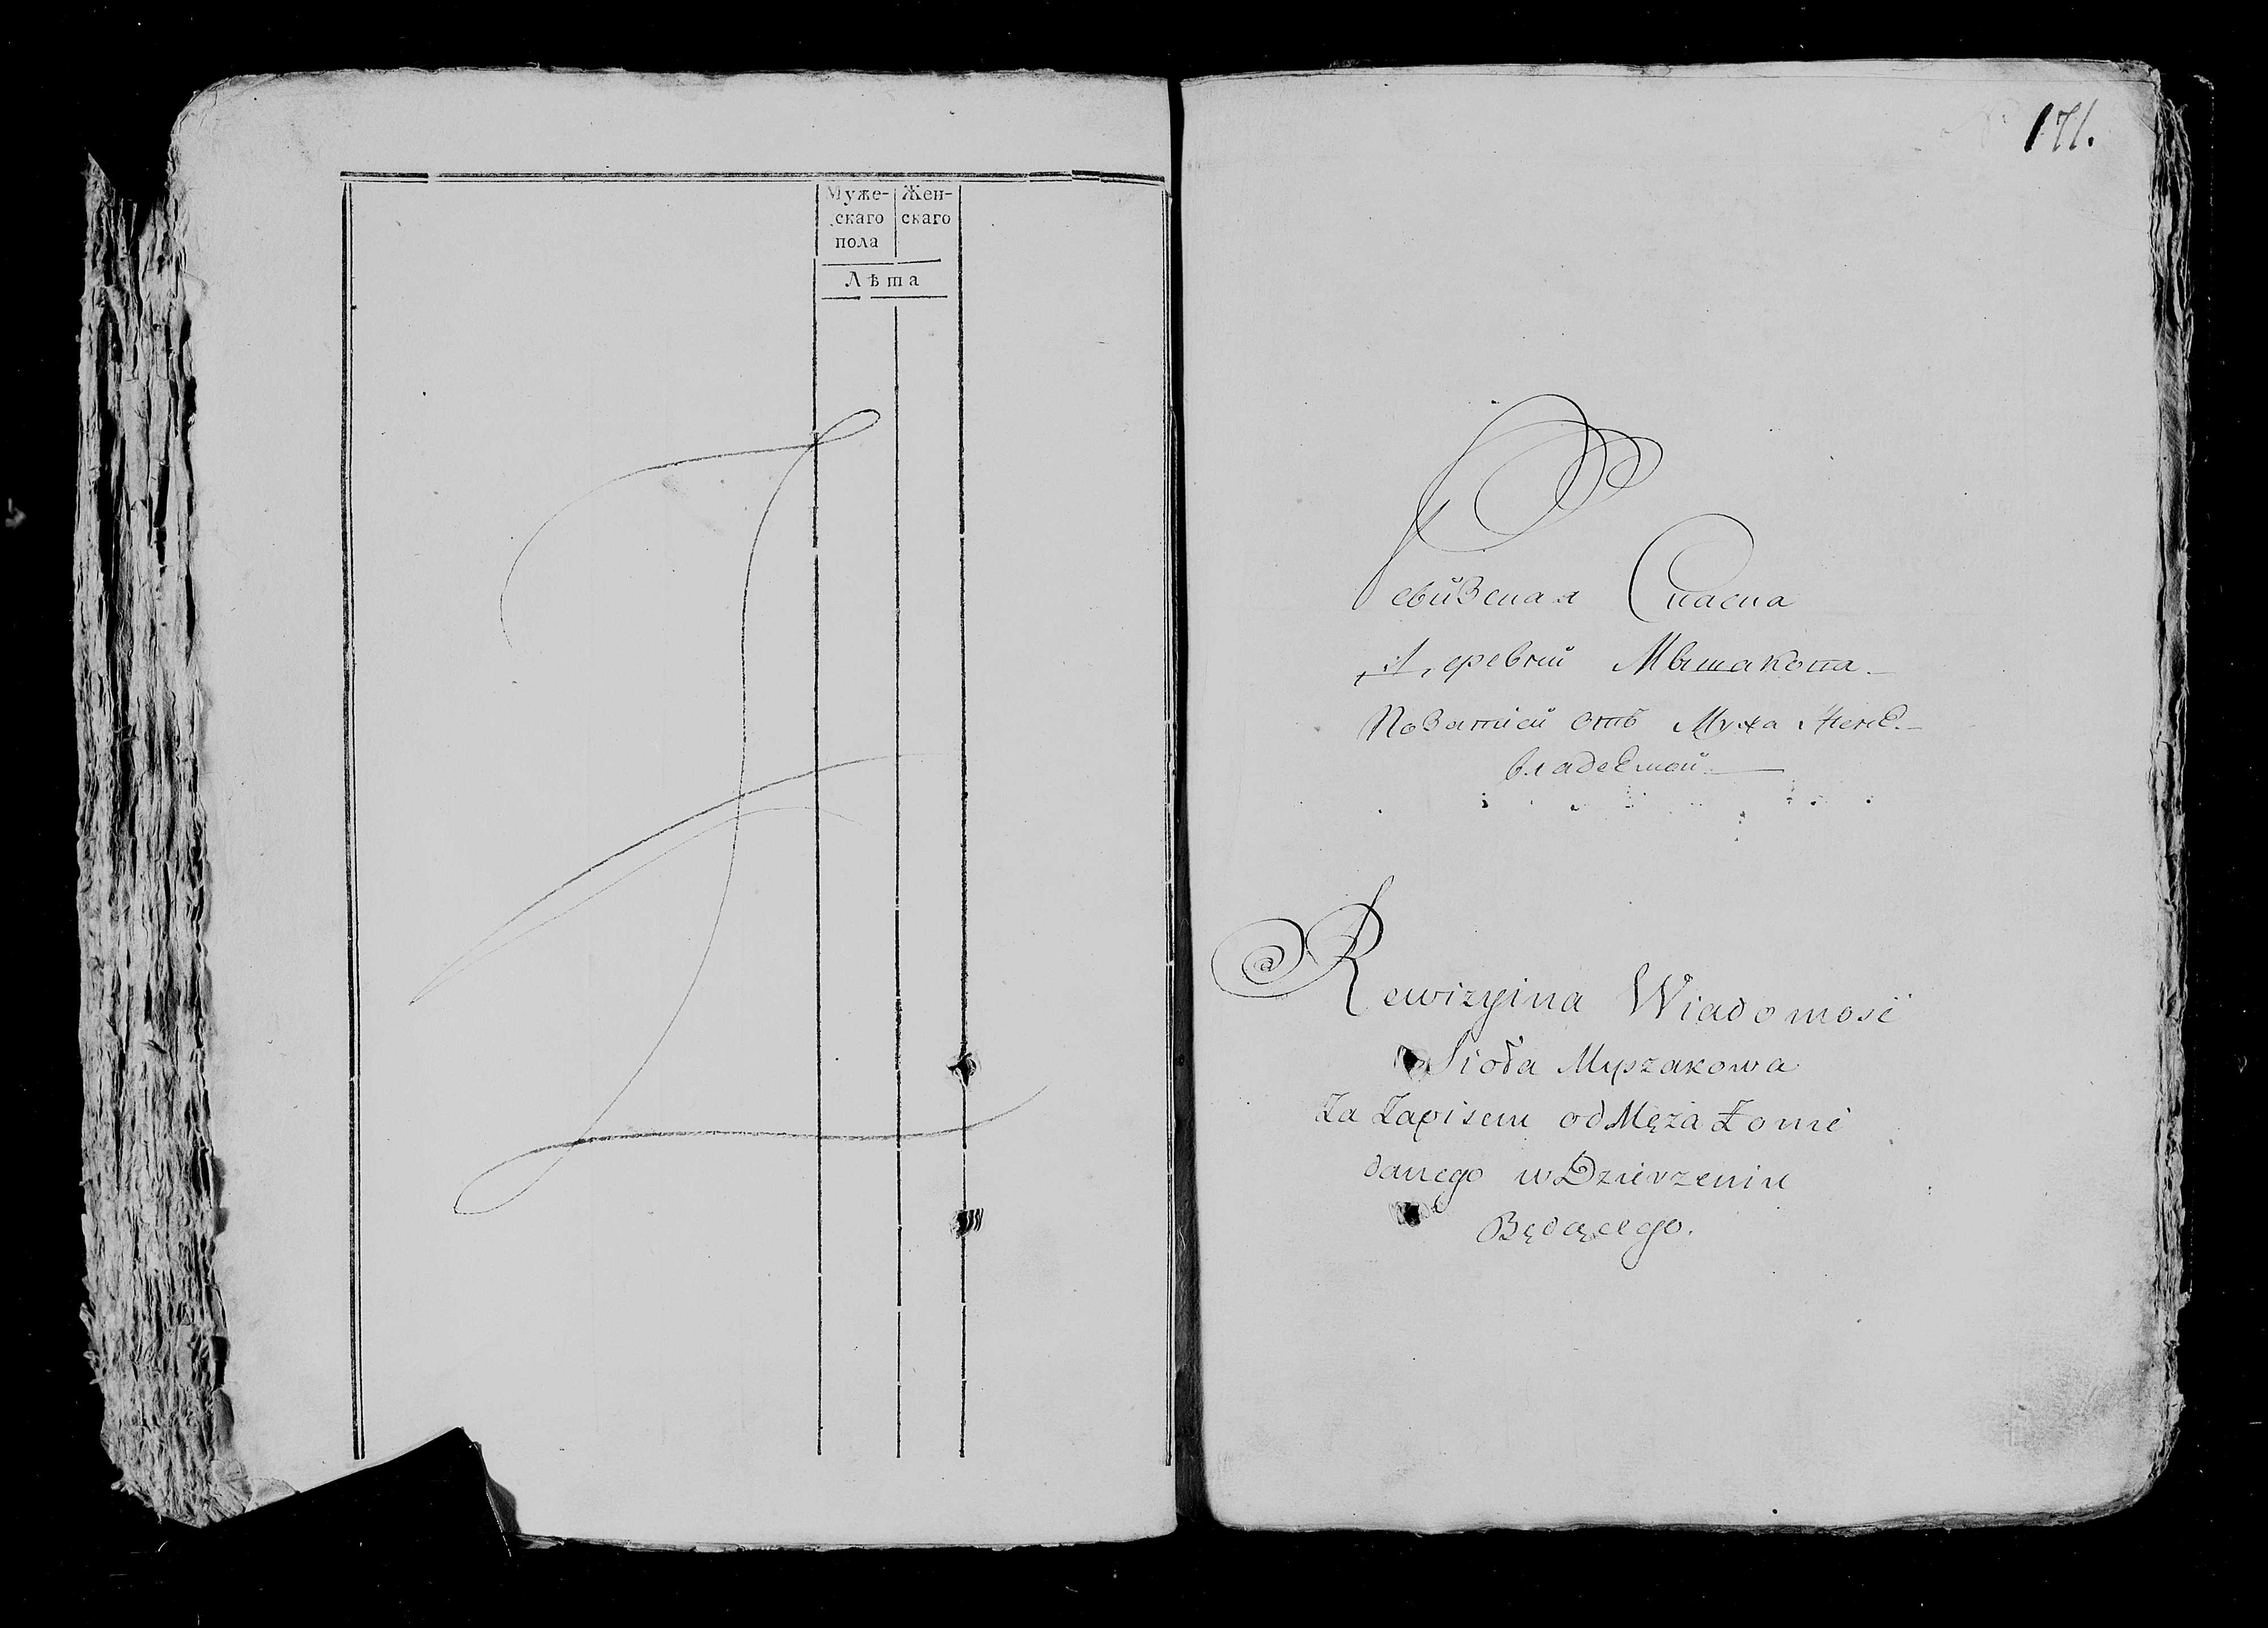 Муже-
скаго
пола
Жен-
скаго
Лѣта
171.
Ревизская Сказка
Деревни Мышакова
По записи отъ Мужа Женѣ
владеемой
Rewizyina Wiadomosć
Sioła Myszakowa
Za Zapisem od Męża Żonie
danego w Dzierzeniu
Będącego.